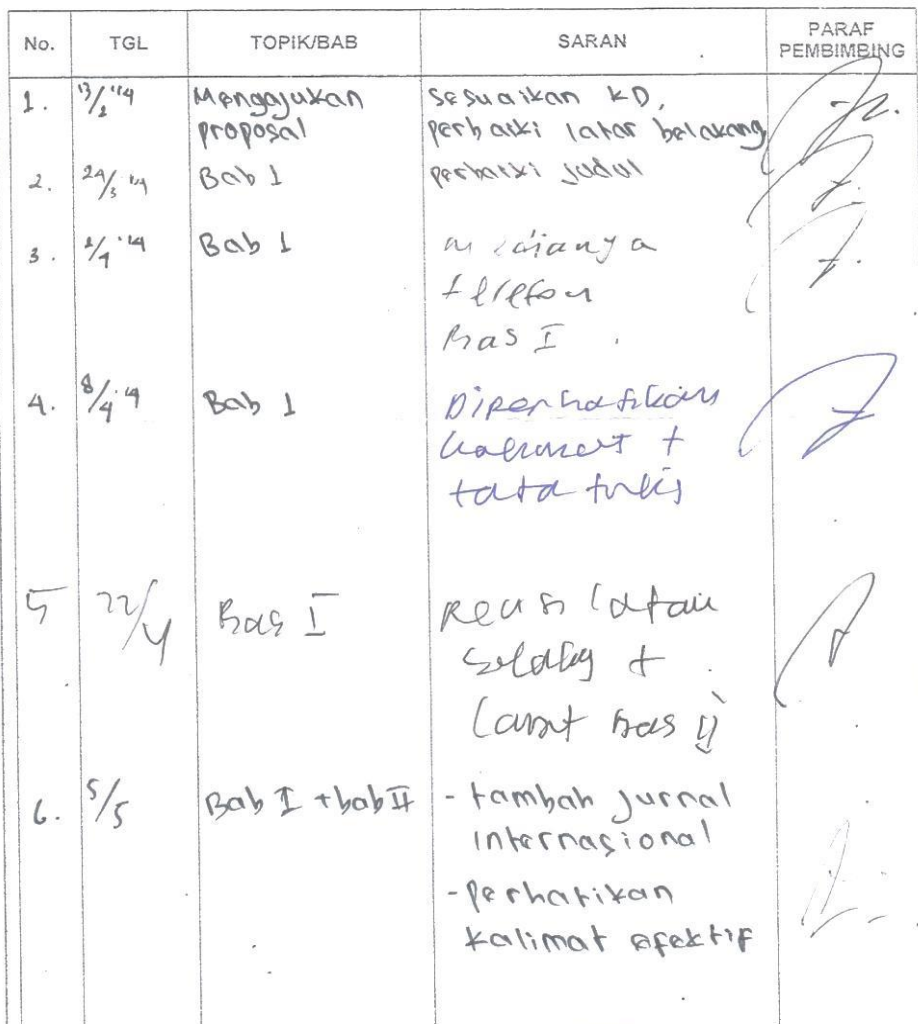 No. TGL TOPIK/BAB SARAN PARAF PEMBIMBING
1. Mengajukan proposal Sesuaikan KD,
perbaiki latar belakang
2. 24/3 '14 Bab 1 perbaiki judul
3. Bab 1
Bab I
4. 8/4 '14 Bab 1 Diperhatikan
kalimat +
tata tulis
5 22/4 Bab I Revisi latar
+
Lanjut Bab II
6. 5/5 Bab I + bab II - tambah jurnal
internasional
- perhatikan
kalimat efektif